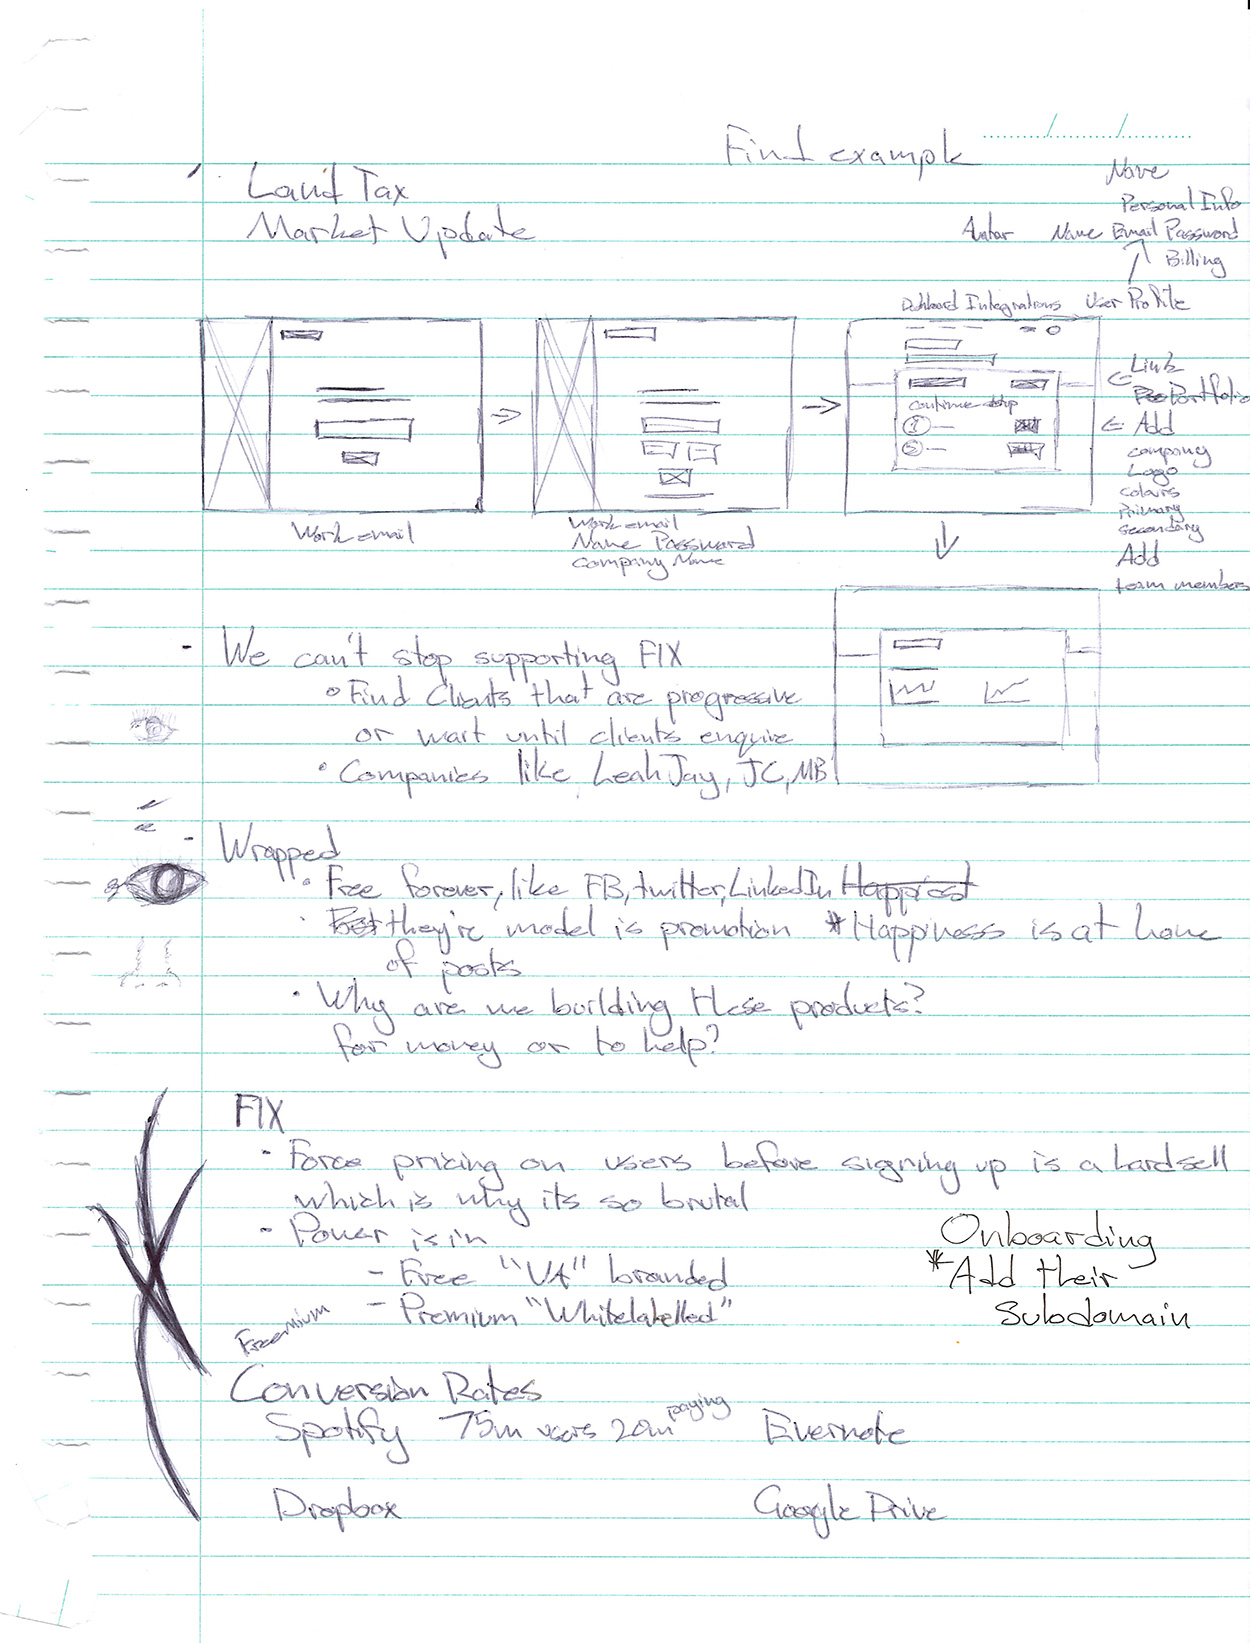 Find example
Land Tax
Market Update
Name
Personal Info
Avatar Name Email Password
Billing
Dashboard Integrations User Profile
Continue setup
1
2
Link
Portfolio
Add
company
Logo
colours
Primary
secondary
Add
team members
Work email
Work email
Name Password
Company Name
- We can't stop supporting FIX
Find Clients that are progressive
or wait until clients enquire
• Companies like LeahJay, JC, MB
- Wrapped
• Free forever, like FB, twitter, LinkedIn Happiest
• But they're model is promotion * Happiness is at home
of posts
• Why are we building these products?
for money or to help?
FIX
• Force pricing on users before signing up is a hard sell
which is why its so brutal
• Power is in
- Free "VA" branded
- Premium "Whitelabelled"
Onboarding
* Add their
Subdomain
Freemium
Conversion Rates
Spotify 75m users 20m paying Evernote
Dropbox Google Drive